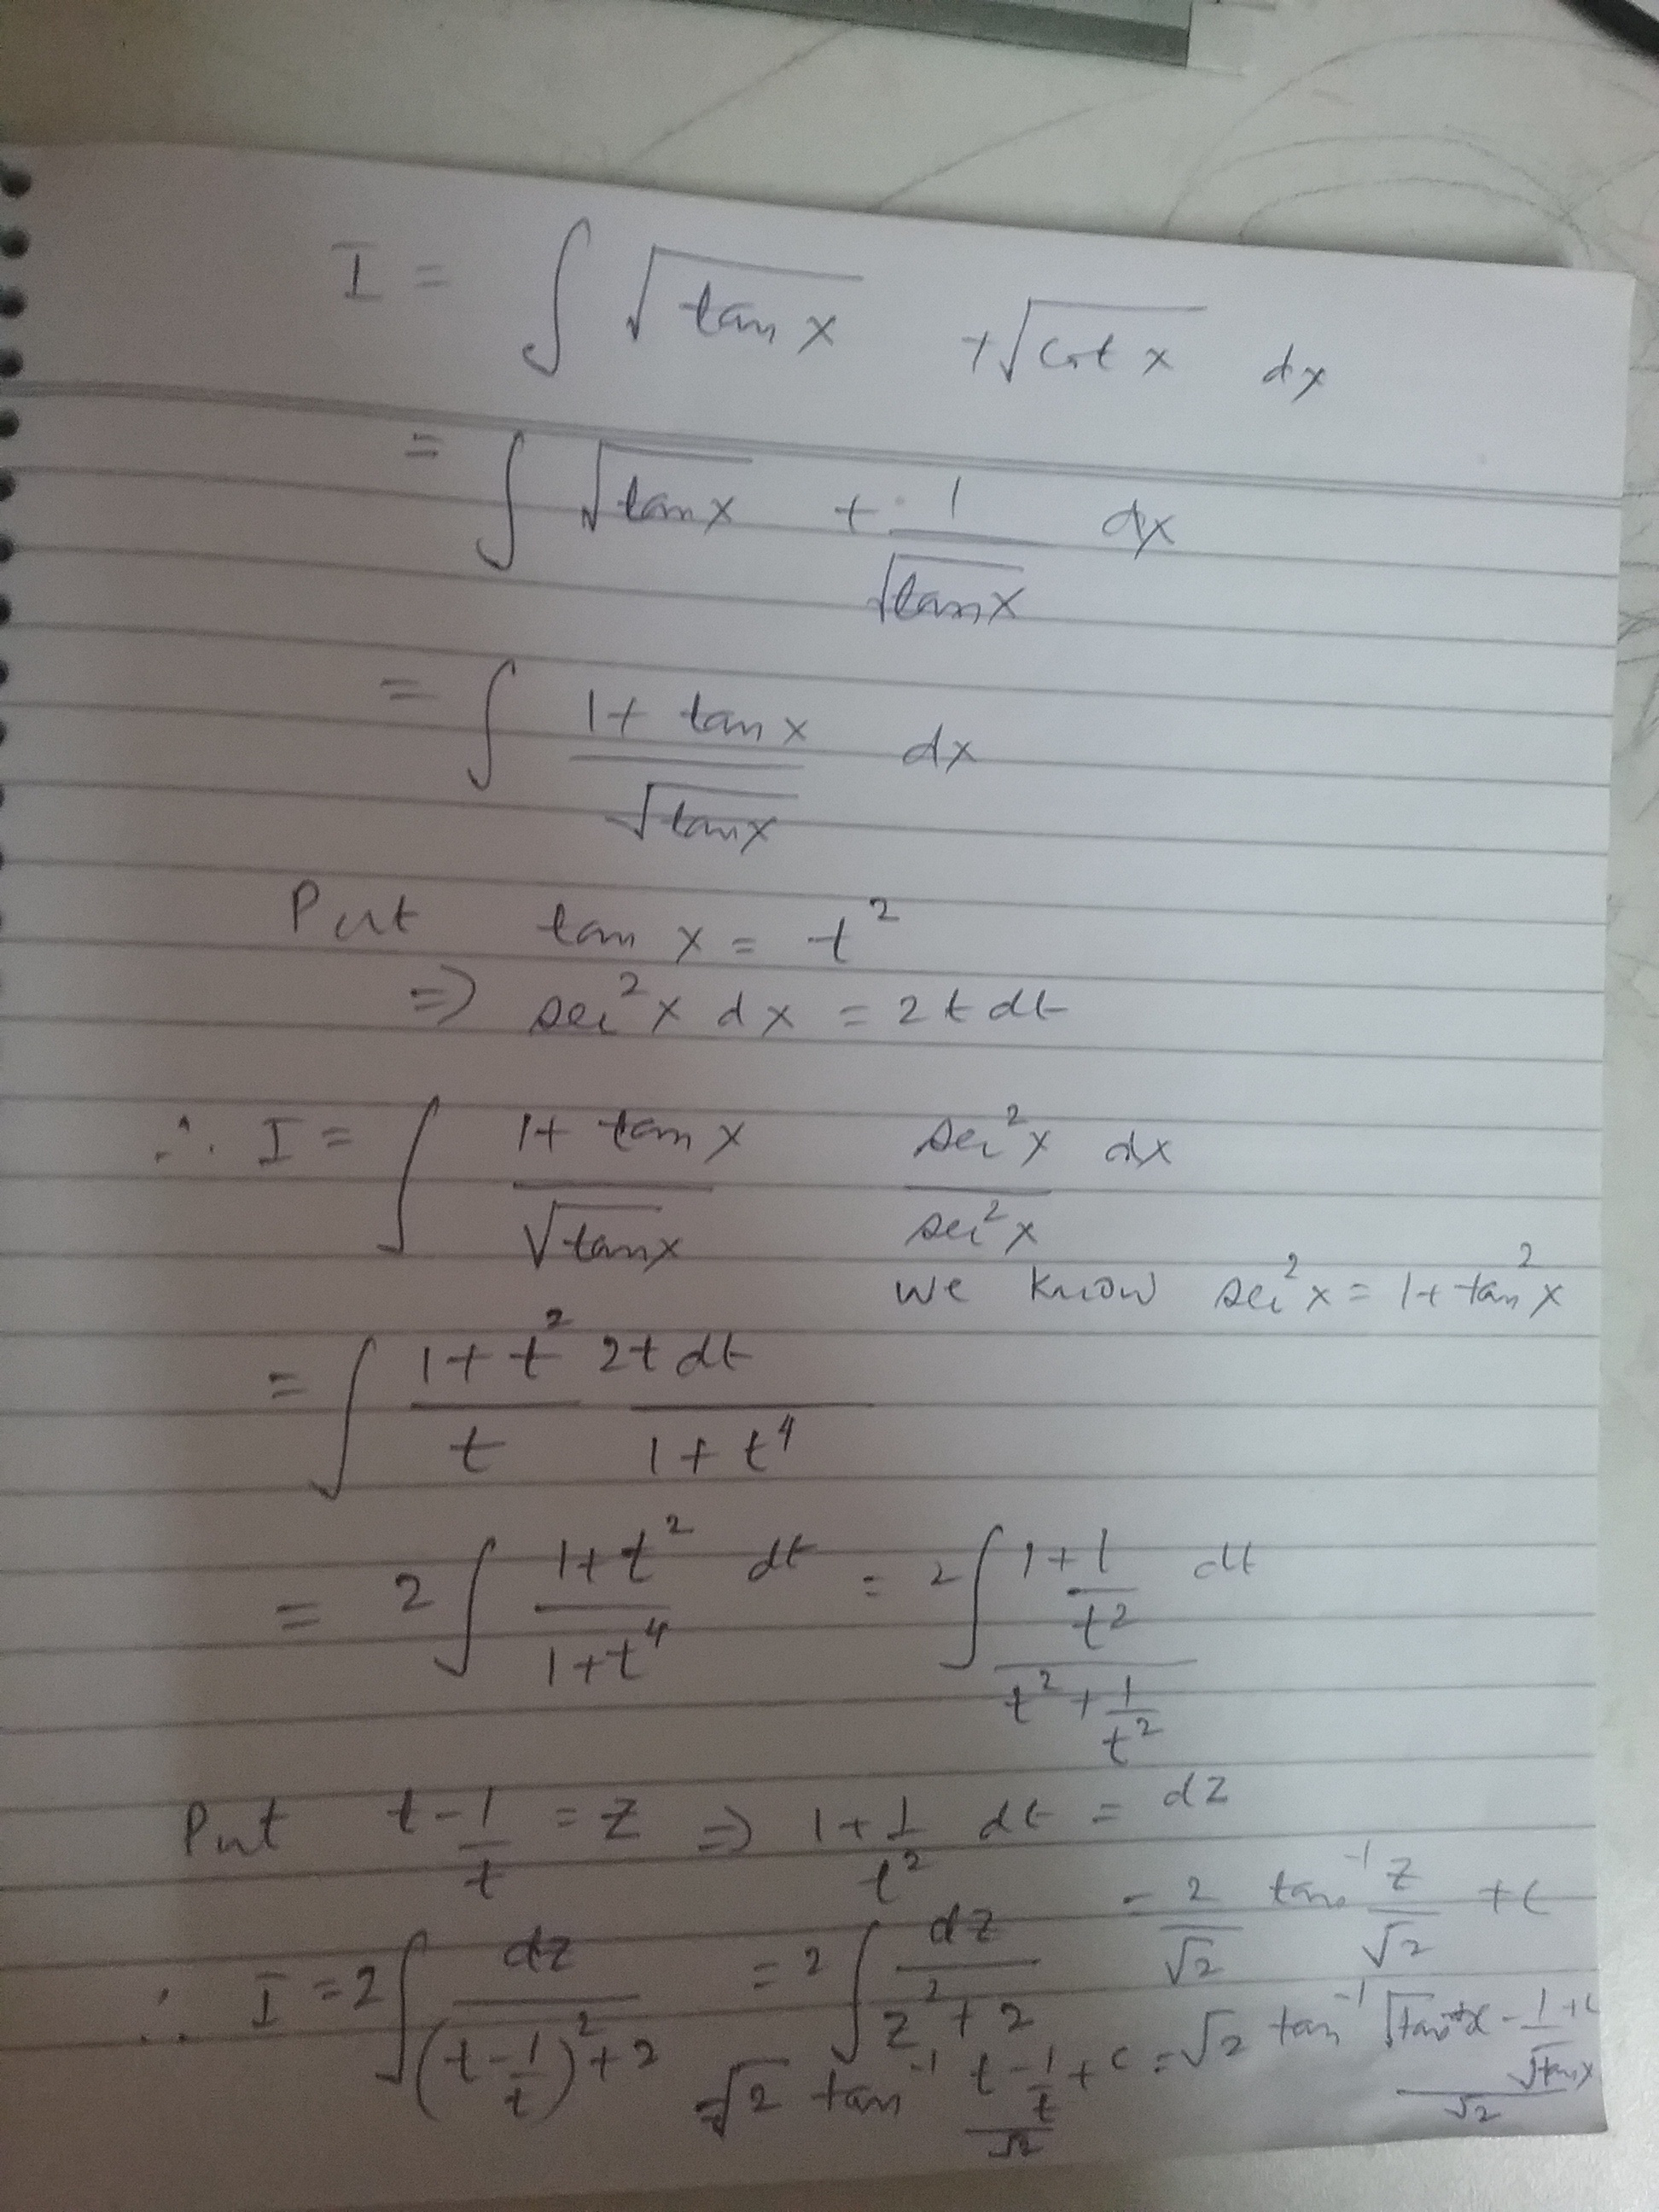 I = ∫ √tan x + √cot x dx
= ∫ √tan x + 1/√tan x dx
= ∫ (1 + tan x)/√tan x dx
Put tan x = t²
⇒ sec² x dx = 2t dt
∴ I = ∫ (1 + tan x)/√tan x sec² x dx/sec² x
we know sec² x = 1 + tan² x
= ∫ (1 + t²)/t 2t dt/(1 + t⁴)
= 2 ∫ (1 + t²)/(1 + t⁴) dt = 2 ∫ (1 + 1/t²)/(t² + 1/t²) dt
Put t - 1/t = z ⇒ 1 + 1/t² dt = dz
∴ I = 2 ∫ dz/((t - 1/t)² + 2) = 2 ∫ dz/(z² + 2) = 2/√2 tan⁻¹ z/√2 + c
= √2 tan⁻¹ (t - 1/t)/√2 + c = √2 tan⁻¹ (√tan x - 1/√tan x)/√2 + c